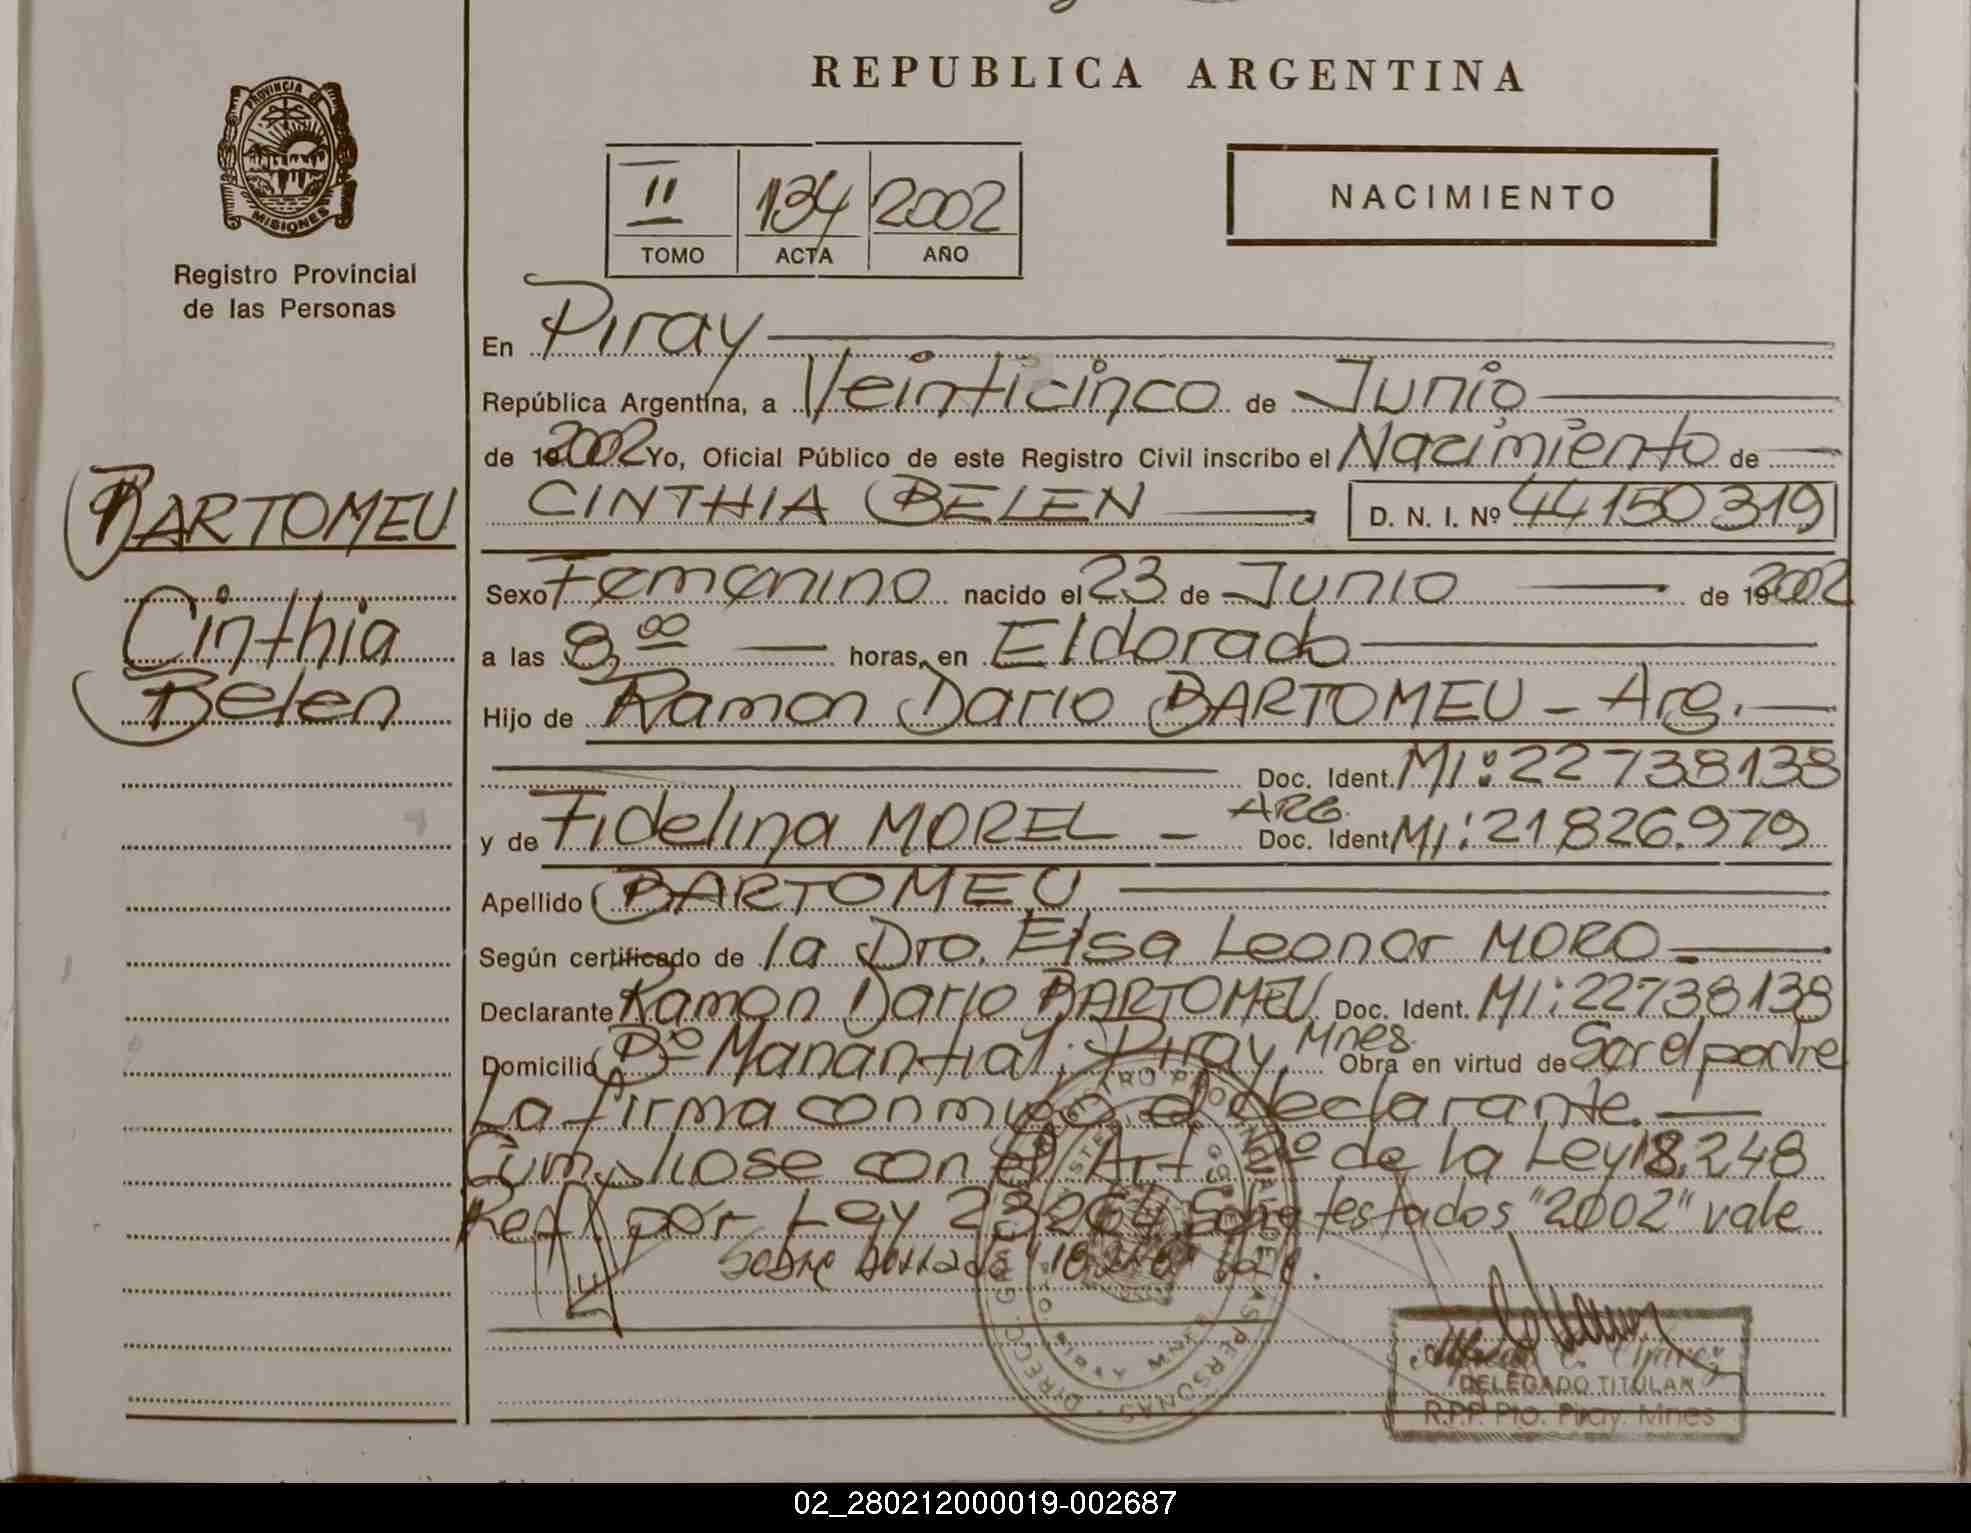 REPUBLICA ARGENTINA
PROVINCIA DE
MISIONES
Registro Provincial
de las Personas
II 134 2002
TOMO ACTA AÑO
NACIMIENTO
BARTOMEU
Cinthia
Belen
En Piray
República Argentina, a Veinticinco de Junio
de 192002 Yo, Oficial Público de este Registro Civil inscribo el Nacimiento de
CINTHIA BELEN D. N. I. Nº 44150319
Sexo Femenino nacido el 23 de Junio de 192002
a las 8,00 horas, en Eldorado
Hijo de Ramon Dario BARTOMEU - Arg.
Doc. Ident. MI: 22738138
y de Fidelina MOREL - ARG. Doc. Ident. MI: 21826.979
Apellido BARTOMEU
Según certificado de la Dra. Elsa Leonor MORO
Declarante Ramon Dario BARTOMEU Doc. Ident. MI: 22738138
Domicilio Bº Manantial; Piray, Mnes. Obra en virtud de Ser el padre
La firma conmigo el declarante.
Cumpliose con el Art. 2º de la Ley 18.248
Ref. por Ley 23264 Sobre testados "2002" vale
Sobre borrado "18248" vale.
DELEGADO TITULAR
R.P.P. Pto. Piray. Mnes
02_280212000019-002687